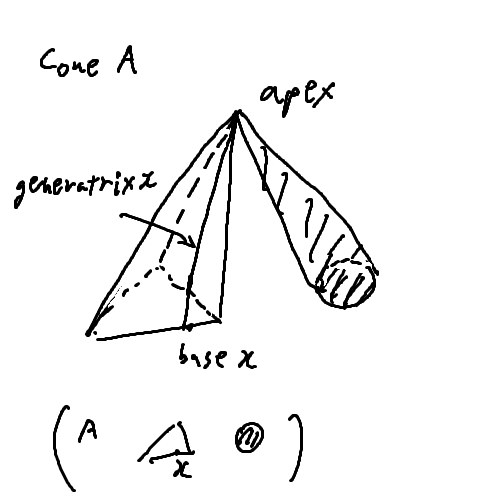 Cone A
apex
generatrix x
base x
( A x )